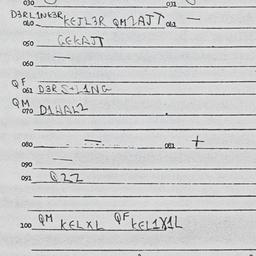 030 031
D3RL1NK3R
040 KEJL3R QM2AJT 041 —
050 GEKAJT
060 —
QF
061 D3R S+L1NG
QM
070 D1WAL2
080 — 081 +
090 —
091 Q2Z
100 QM KELXL QF KEL1X1L